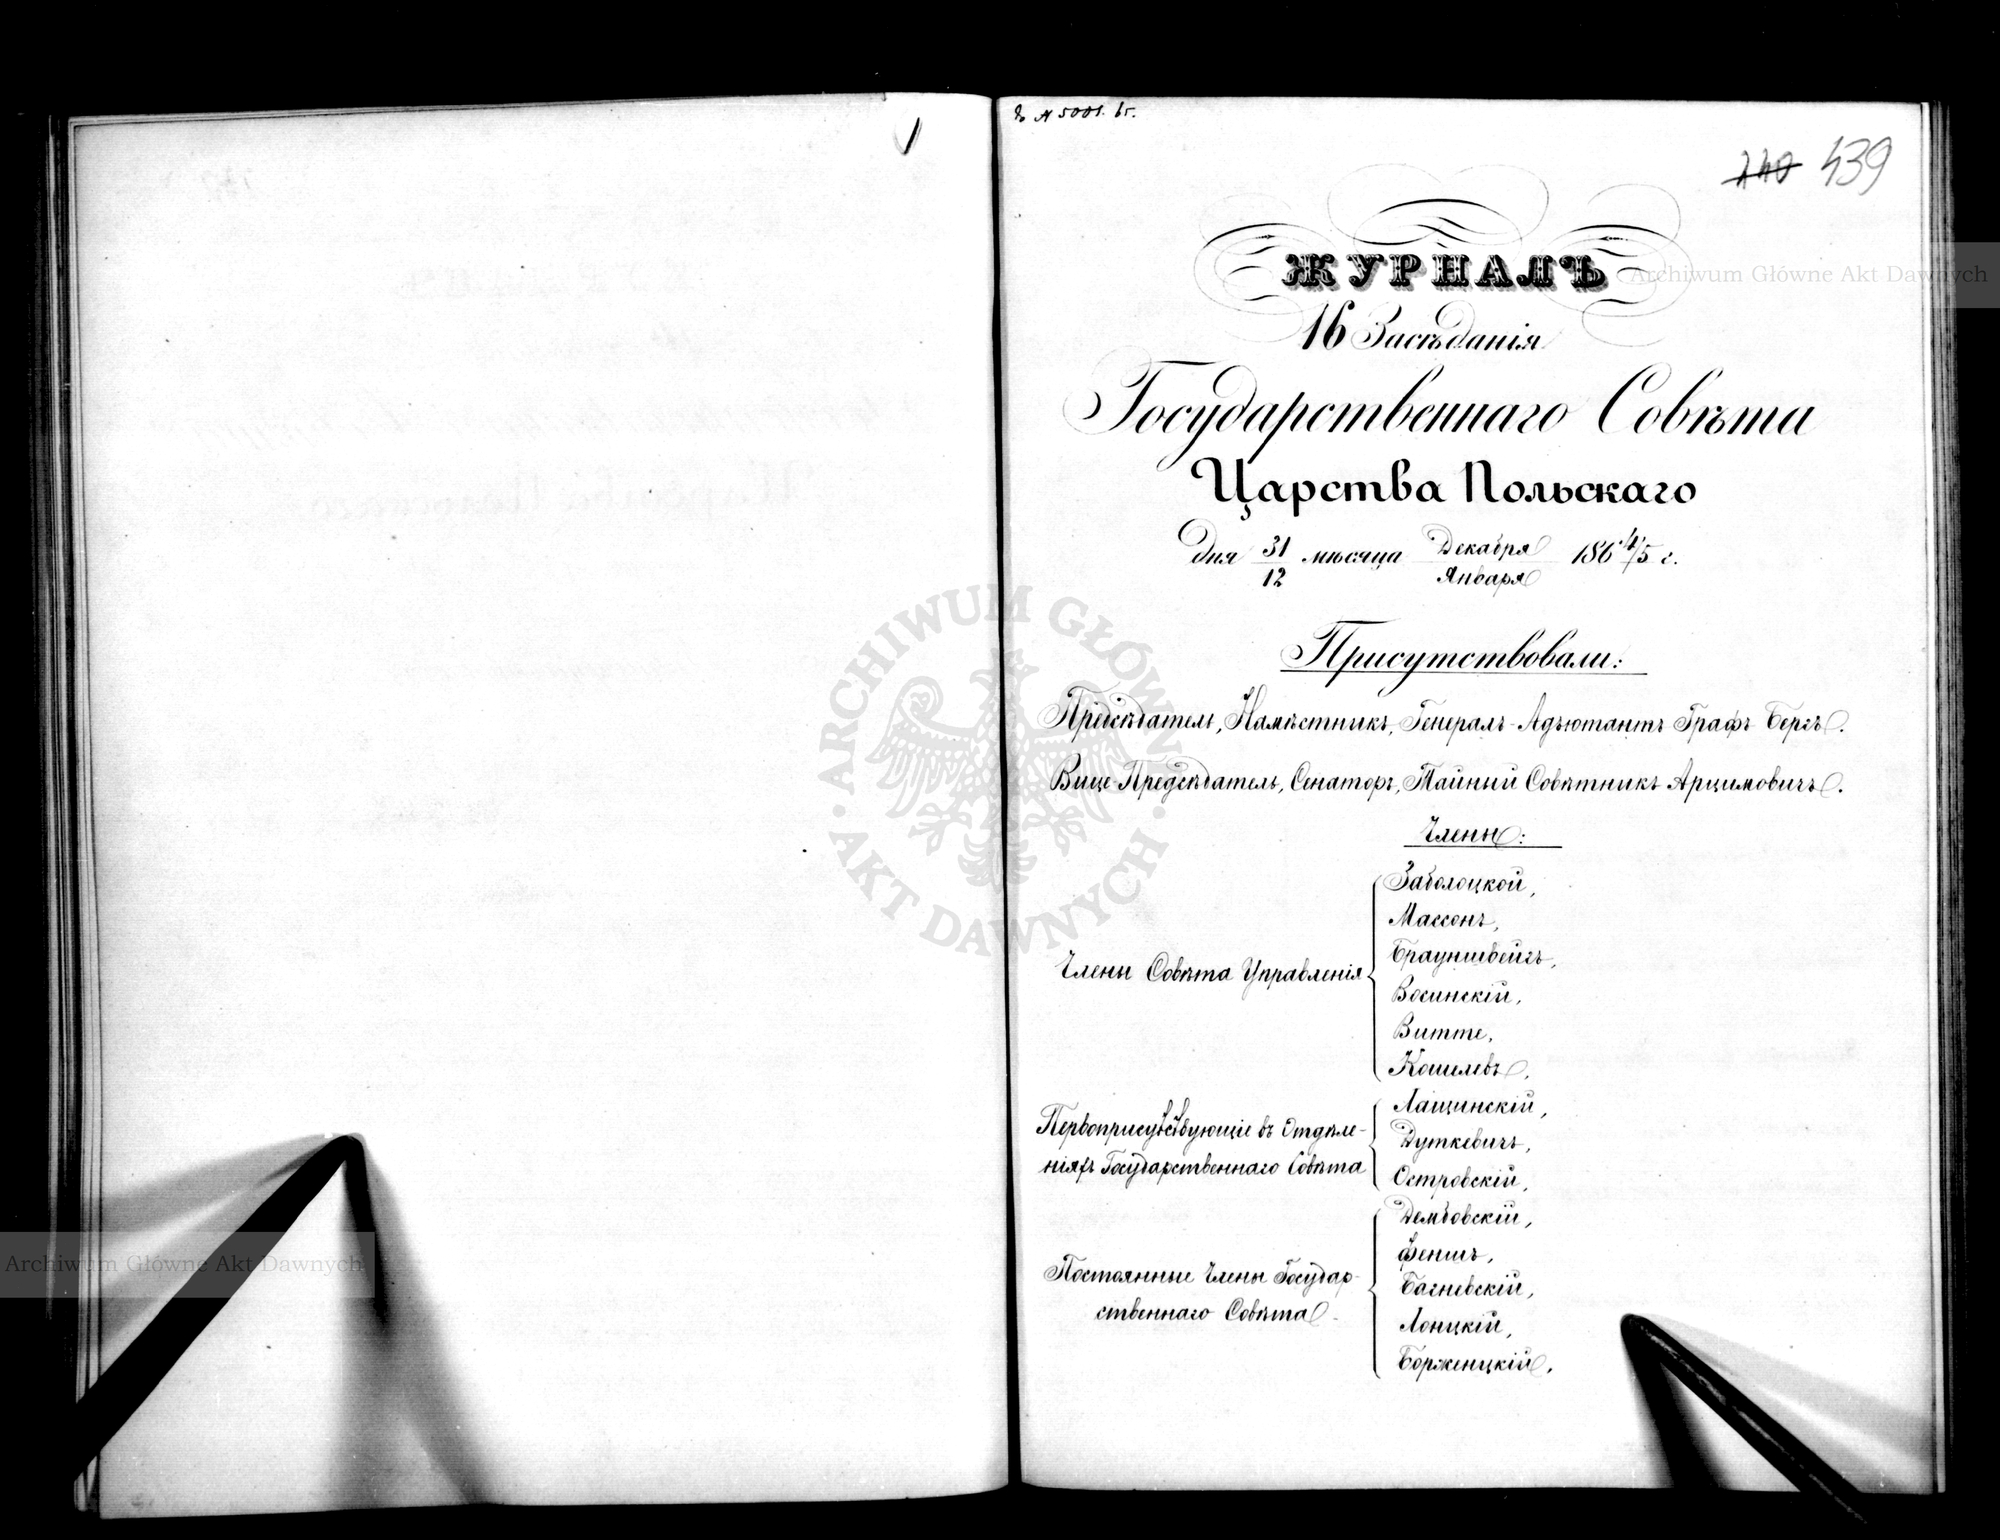 № 5001.
439
ЖУРНАЛЪ
16 Засѣданія
Государственнаго Совѣта
Царства Польскаго
дня 31/12 мѣсяца Декабря/Января 1864/5 г.
Присутствовали:
Предсѣдатель, Намѣстникъ, Генералъ-Адъютантъ Графъ Бергъ.
Вице-Предсѣдатель, Сенаторъ, Тайный Совѣтникъ Арцимовичъ.
Члены:
Члены Совѣта Управленія
Заболоцкой,
Массонъ,
Брауншвейгъ,
Восинскій,
Витте,
Кошелевъ,
Первоприсутствующіе въ Отдѣле-
ніяхъ Государственнаго Совѣта
Лащинскій,
Дуткевичъ,
Островскій,
Постоянные Члены Государ-
ственнаго Совѣта
Дембовскій,
Феншъ,
Багневскій,
Лонцкій,
Борженцкій,
Archiwum Główne Akt Dawnych
ARCHIWUM GŁÓWNE AKT DAWNYCH
Archiwum Główne Akt Dawnych